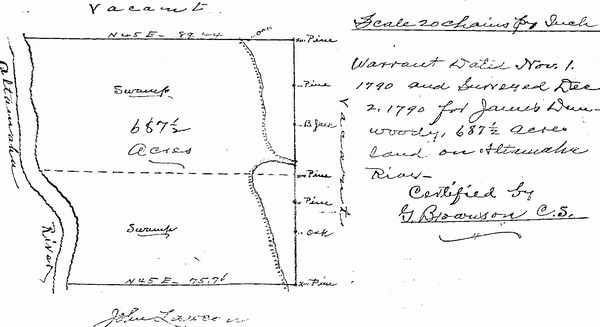 Vacant
N 45 E - 89.44
oak
Pine
Pine
B Jack
Pine
Pine
oak
Pine
Vacant
Swamp
687½
Acres
Swamp
N 45 E - 75.76
Altamaha
River
John Lawson
Scale 20 chains pr Inch
Warrant Dated Nov. 1.
1790 and Surveyed Dec
2, 1790 for James Dun-
woody, 687½ acres
land on Altamaha
River -
Certified by
Brownson C.S.